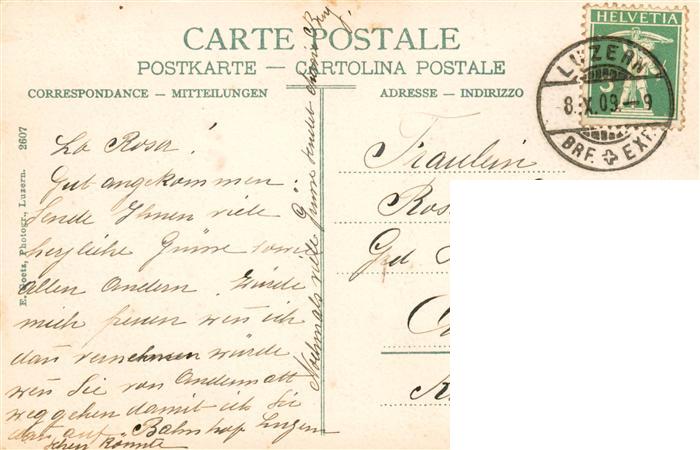 CARTE POSTALE
POSTKARTE — CARTOLINA POSTALE
CORRESPONDANCE — MITTEILUNGEN
ADRESSE — INDIRIZZO
HELVETIA
5
LUZERN
8.X.09.—9
BRF. EXP.
E. Goetz, Photogr., Luzern. 2607
La Rosa!
Gut angekommen:
Sende Ihnen viele
herzliche Grüsse sowie
allen Andern. Würde
mich freuen wen ich
dan vernehmen würde
wen Sie von Andermatt
weggehen damit ich Sie
dan auf Bahnhof Luzern
sehen könnte
Nochmals viele Grüsse sendet
Fräulein